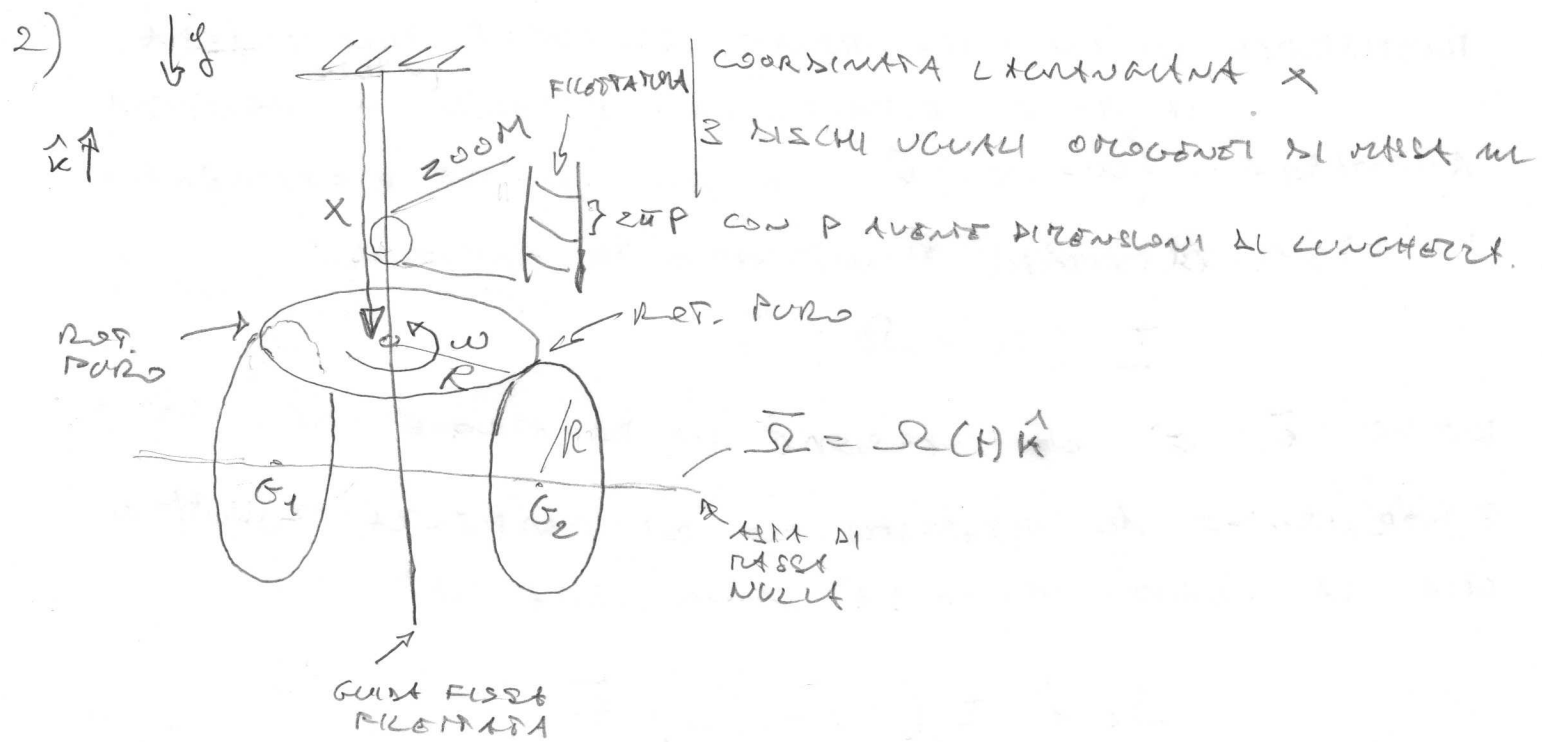 2)
g
k̂
FILETTATURA
COORDINATA LAGRANGIANA X
ZOOM
3 DISCHI UGUALI OMOGENEI DI MASSA m
X
} 2πP CON P AVENTE DIMENSIONI DI LUNGHEZZA.
ROT. PURO
ROT.
PURO
ω
R
R
Ω̄ = Ω(t) k̂
G1
G2
ASTA DI
MASSA
NULLA
GUIDA FISSA
FILETTATA